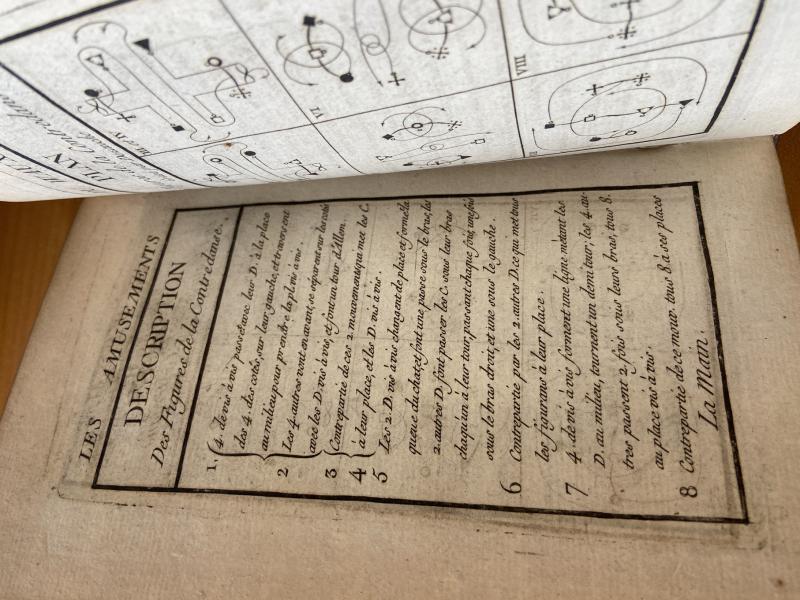 LES AMUSEMENTS
DESCRIPTION
Des Figures de la Contredanse.
1. 4. de vis à vis passet avec leur D. à la place
des 4. des cotés, sur leur gauche, et traversent
au milieu pour prendre la pl. vis à vis.
2 Les 4. autres vont en avant, se séparent sur les cotés
avec les D. vis à vis, et font un tour d'Allem.
3 Contrepartie de ces 2. mouvements qui met les C.
4 à leur place, et les D. vis à vis.
5 Les 2. D. vis à vis changent de place et forme la
queue du chat, et font une passe sous le bras, les
2. autres D. font passer les C. sous leur bras
chaqu'en à leur tour, passant chaque fois, une fois
sous le bras droit, et une sous le gauche.
6 Contrepartie par les 2. autres D. ce qui met tous
les figurans à leur place.
7 4. de vis à vis forment une ligne métant les
D. au milieu, tournent un demi tour; les 4. au-
tres passent 2. fois sous leurs bras, tous 8.
au place vis à vis.
8 Contrepartie de ce mouv. tous 8 à ses places
La Main.
PLAN
VI
VIII